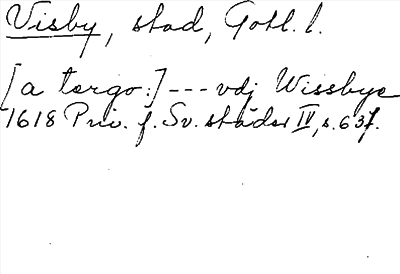 Visby, stad, Gotl. l.
[a tergo:] --- vdj Wissbye
1618 Priv. f. Sv. städer IV, s. 63f.